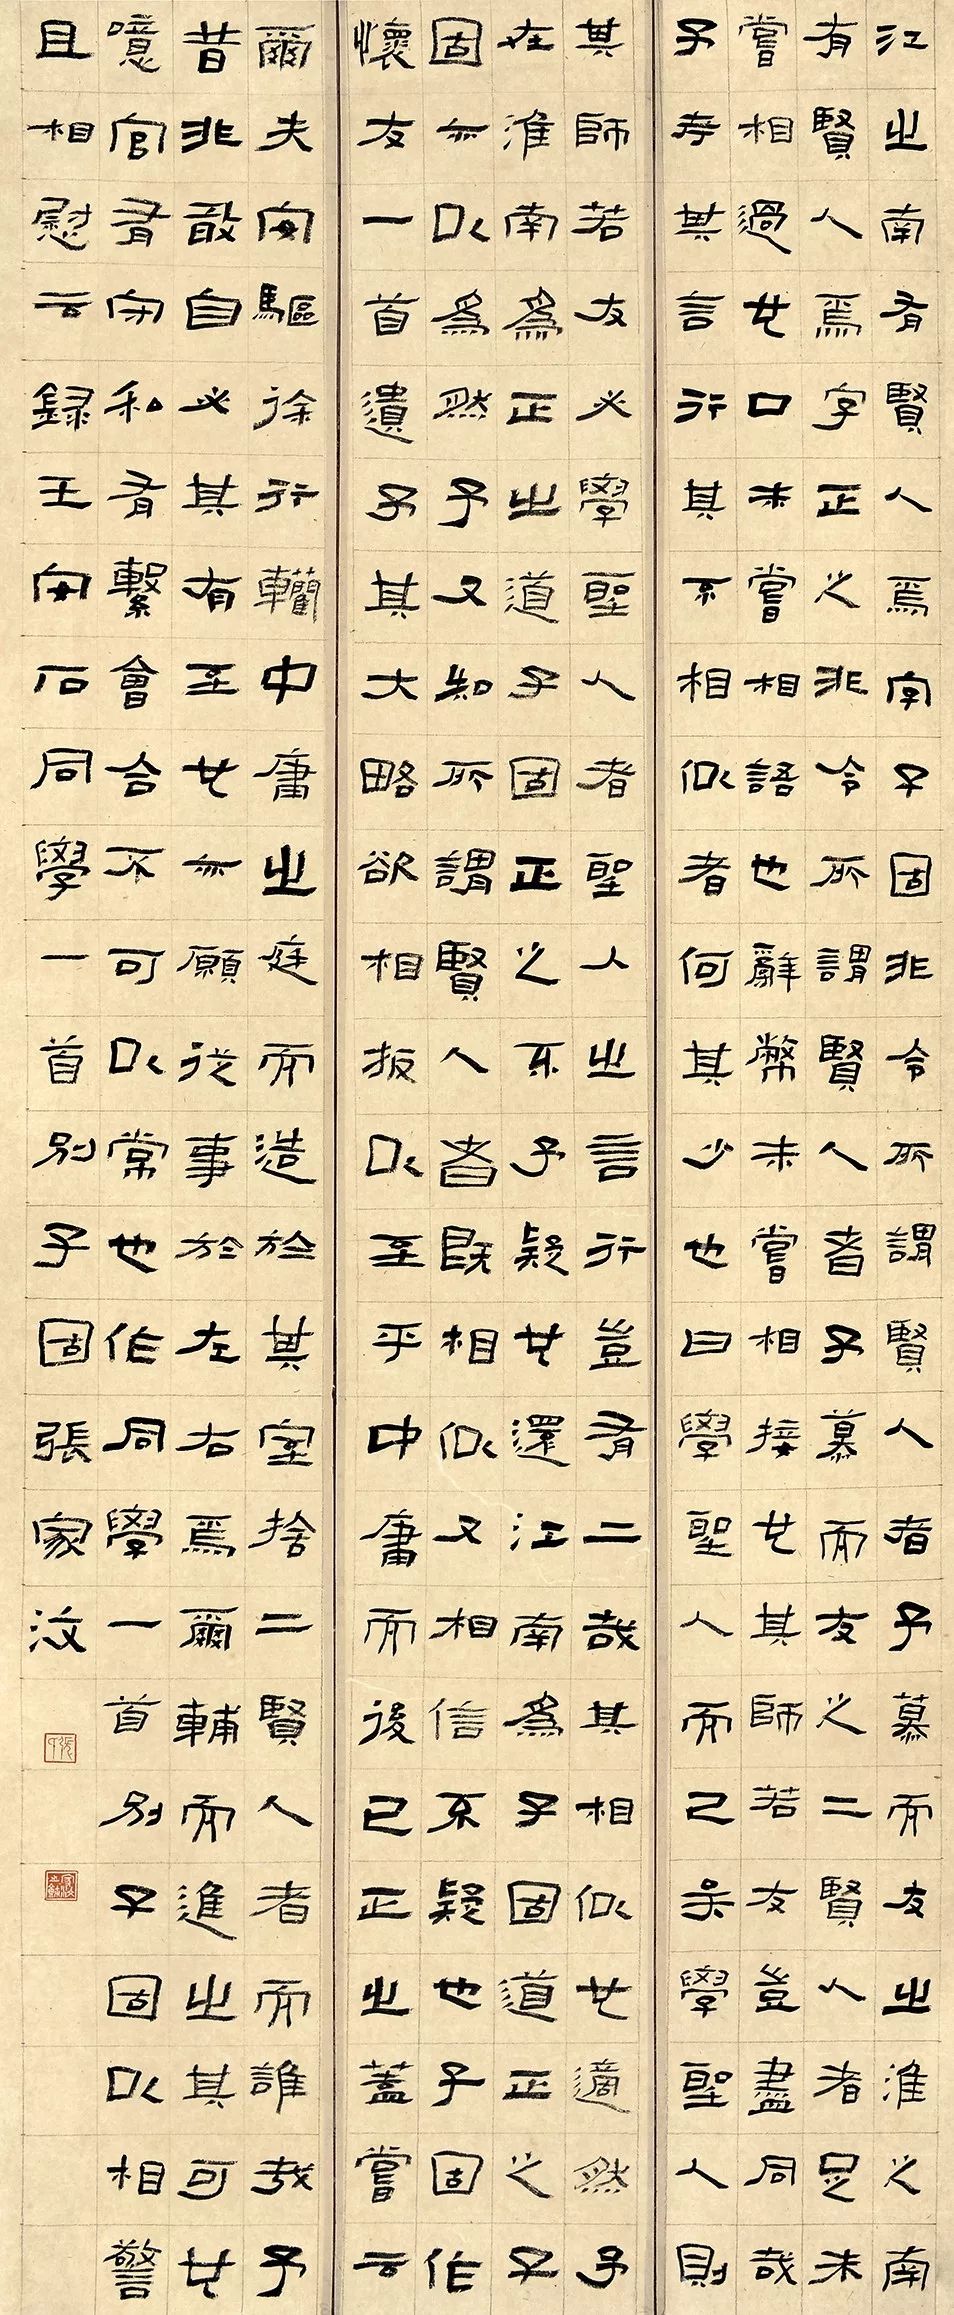 江之南有賢人焉字子固非今所謂賢人者予慕而友之淮之南
有賢人焉字正之非今所謂賢人者予慕而友之二賢人者足未
嘗相過也口未嘗相語也辭幣未嘗相接也其師若友豈盡同哉
予考其言行其不相似者何其少也曰學聖人而已矣學聖人則
其師若友必學聖人者聖人之言行豈有二哉其相似也適然予
在淮南爲正之道子固正之不予疑也還江南爲子固道正之子
固亦以爲然予又知所謂賢人者既相似又相信不疑也子固作
懷友一首遺予其大略欲相扳以至乎中庸而後已正之蓋嘗云
爾夫安驅徐行轥中庸之庭而造於其室捨二賢人者而誰哉予
昔非敢自必其有至也亦願從事於左右焉爾輔而進之其可也
噫官有守私有繫會合不可以常也作同學一首別子固以相警
且相慰云錄王安石同學一首別子固張家汶